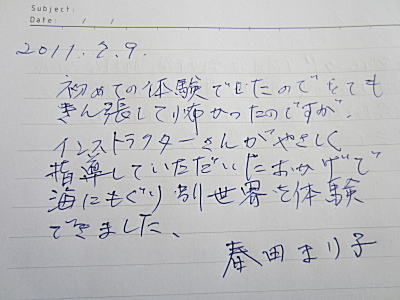 Subject:
Date: / /
2011.2.9.
初めての体験でしたのでとても
きん張して怖かったのですが、
インストラクターさんがやさしく
指導していただいたおかげで
海にもぐり別世界を体験
できました、
春田まり子